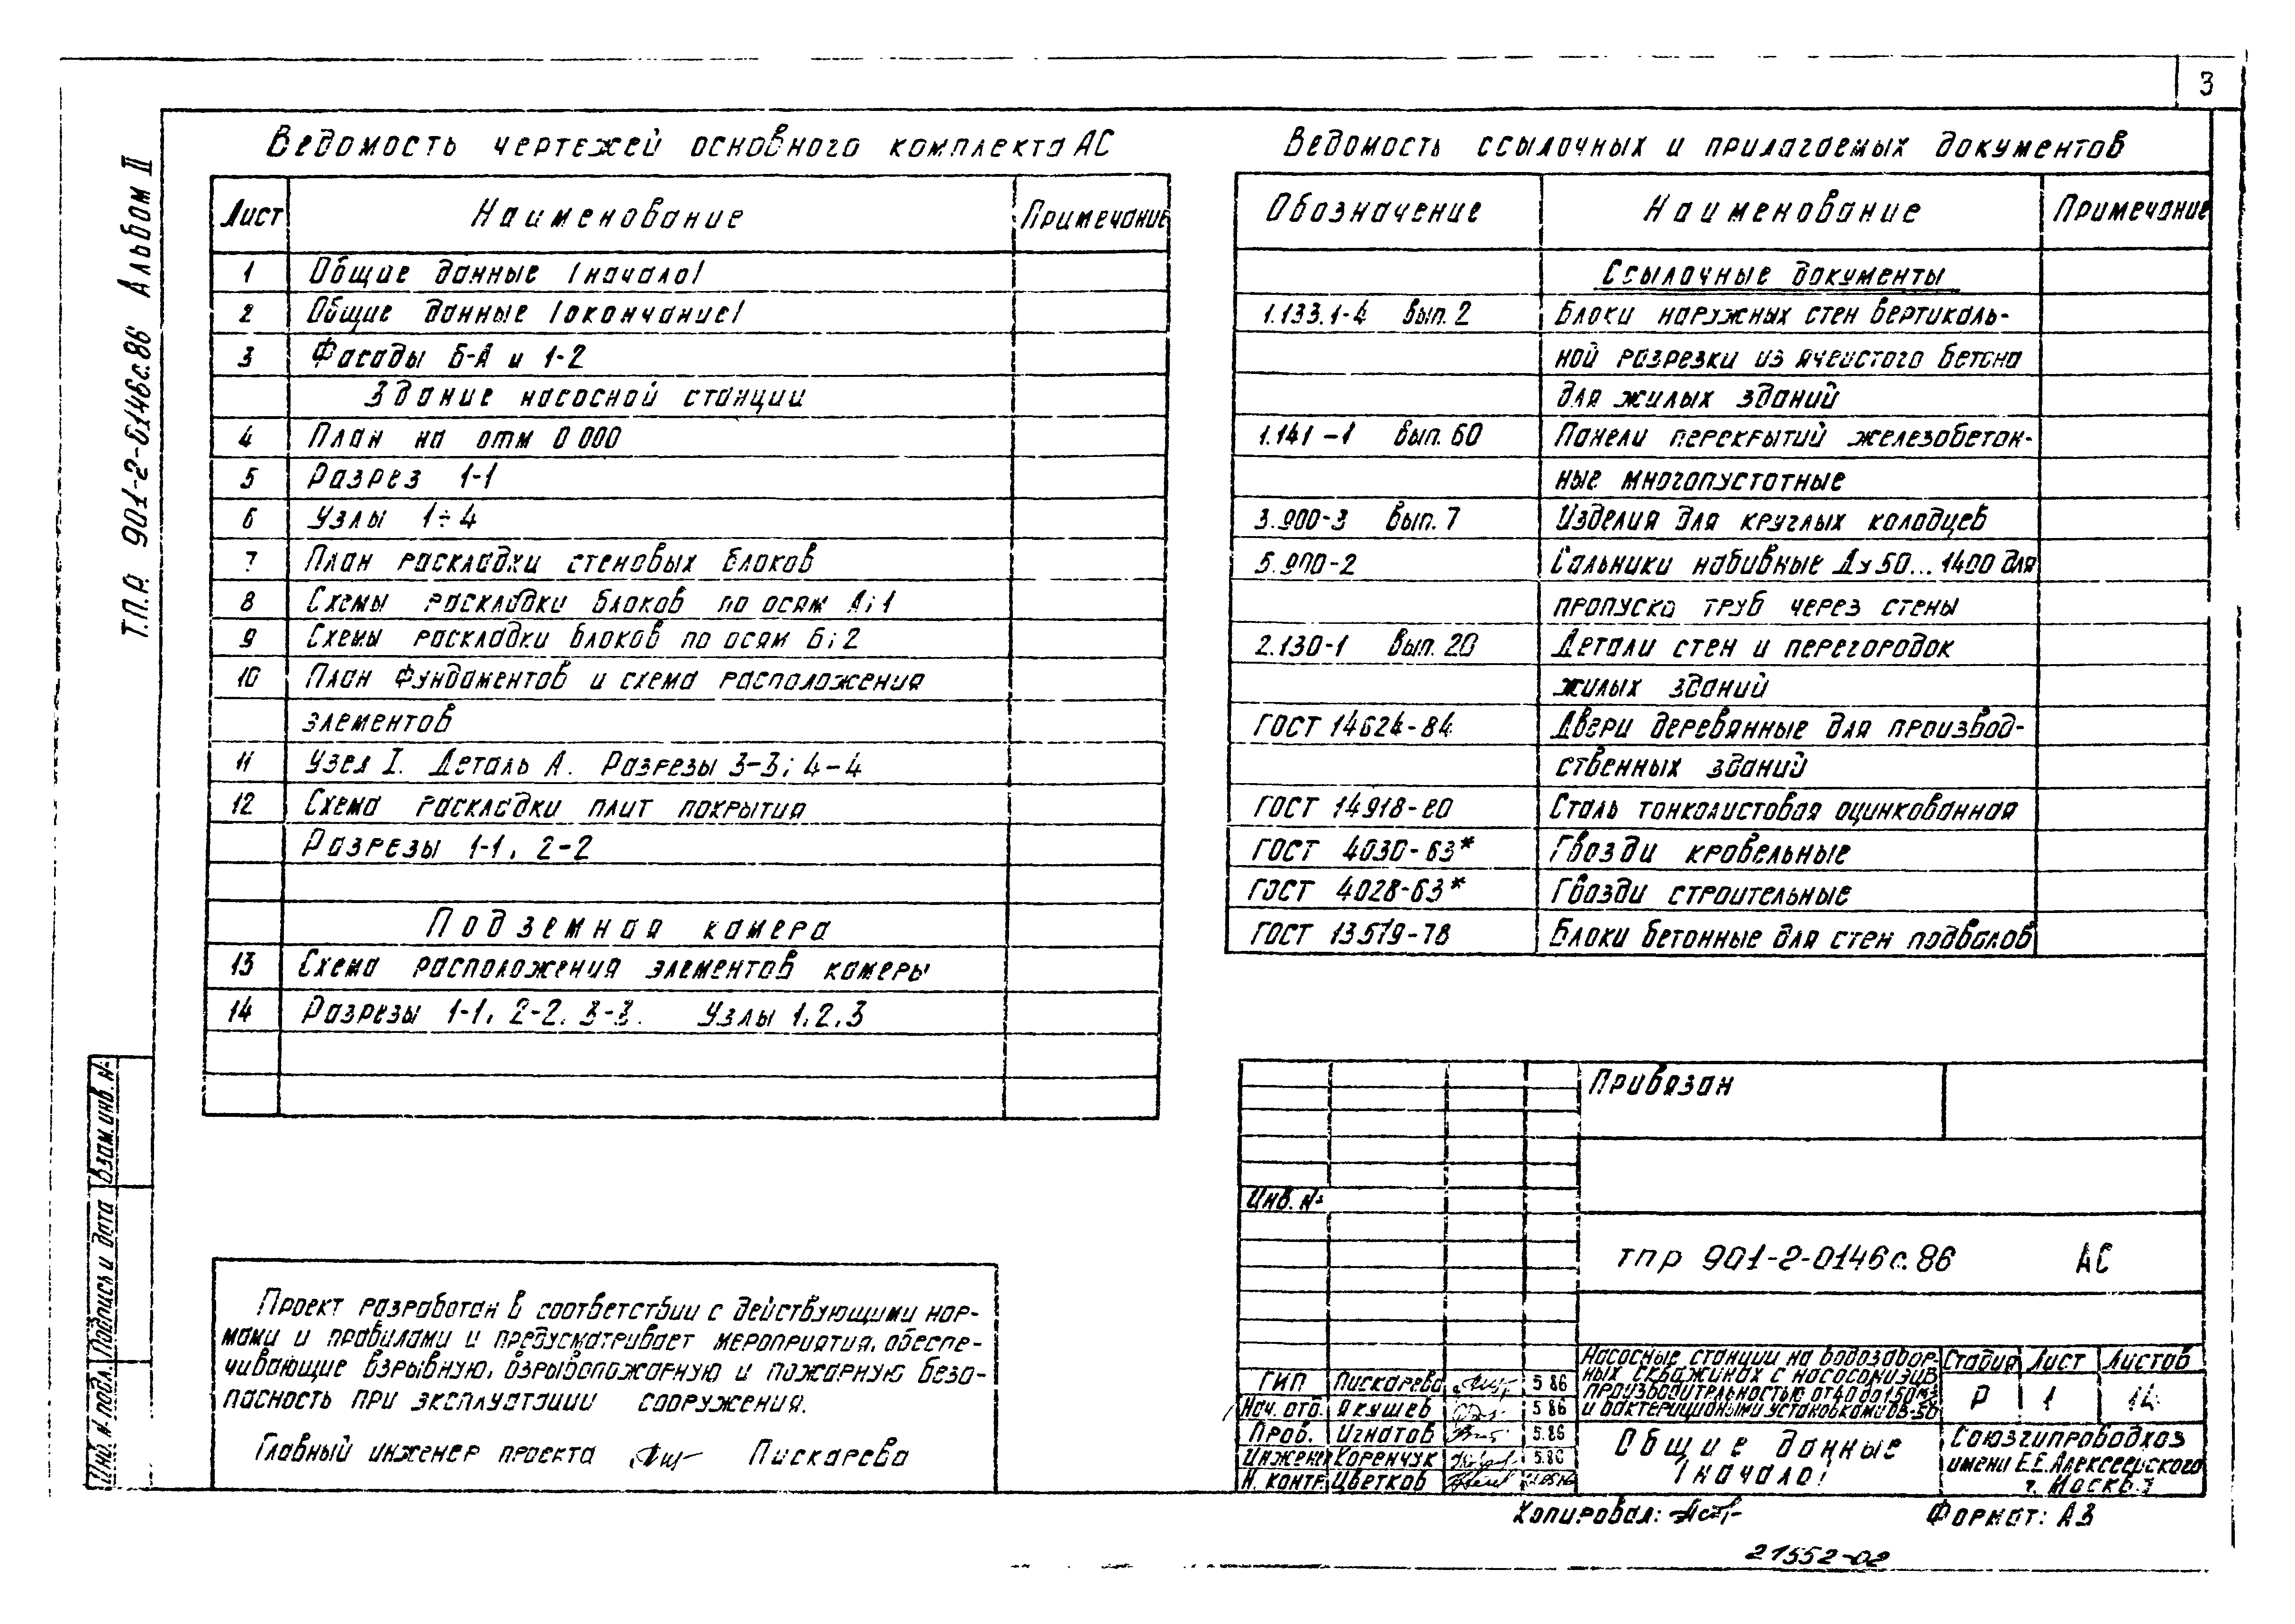 3
Т.П.Р. 901-2-0146с.86 Альбом II
Ведомость чертежей основного комплекта АС
Лист Наименование Примечание
1 Общие данные /начало/
2 Общие данные /окончание/
3 Фасады Б-А и 1-2
Здание насосной станции
4 План на отм 0 000
5 Разрез 1-1
6 Узлы 1÷4
7 План раскладки стеновых блоков
8 Схемы раскладки блоков по осям А; 1
9 Схемы раскладки блоков по осям Б; 2
10 План фундаментов и схема расположения
элементов
11 Узел I. Деталь А. Разрезы 3-3; 4-4
12 Схема раскладки плит покрытия
Разрезы 1-1, 2-2
Подземная камера
13 Схема расположения элементов камеры
14 Разрезы 1-1, 2-2, 3-3. Узлы 1, 2, 3
Ведомость ссылочных и прилагаемых документов
Обозначение Наименование Примечание
Ссылочные документы
1.133.1-4 вып. 2 Блоки наружных стен вертикаль-
ной разрезки из ячеистого бетона
для жилых зданий
1.141-1 вып. 60 Панели перекрытий железобетон-
ные многопустотные
3.900-3 вып. 7 Изделия для круглых колодцев
5.900-2 Сальники набивные Ду 50...1400 для
пропуска труб через стены
2.130-1 вып. 20 Детали стен и перегородок
жилых зданий
ГОСТ 14624-84 Двери деревянные для производ-
ственных зданий
ГОСТ 14918-80 Сталь тонколистовая оцинкованная
ГОСТ 4030-63* Гвозди кровельные
ГОСТ 4028-63* Гвозди строительные
ГОСТ 13579-78 Блоки бетонные для стен подвалов
Проект разработан в соответствии с действующими нор-
мами и правилами и предусматривает мероприятия, обеспе-
чивающие взрывную, взрывопожарную и пожарную безо-
пасность при эксплуатации сооружения.
Главный инженер проекта Пискарева
Взам. инв. №
Подпись и дата
Инв. № подл.
Привязан
Инв. №
тпр 901-2-0146с.86 АС
ГИП Пискарева 5 86
Нач. отд. Якушев 5 86
Пров. Игнатов 5.86
Инжен. Коренчук 5.86
Н. контр. Цветков
Насосные станции на водозабор-
ных скважинах с насосом ЭЦВ
производительностью от 40 до 150 м3
и бактерицидными установками ОВ-50
Стадия Лист Листов
Р 1 14
Общие данные
/начало/
Союзгипроводхоз
имени Е.Е. Алексеевского
г. Москва
Копировал:
Формат: А3
21552-02